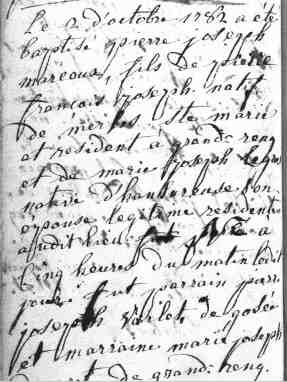 Le 2 d'octobre 1782 a été
baptisé pierre joseph
mareous, fils de pierre
francois joseph natif
de merbes Ste marie
et resident a grande reng
et de marie joseph legros
native d'hantes son
épouse legitime residente
audit lieu, né a
Cinq heures du matin ledit
jour: fut parrain pierre
joseph varlet de gosée
et marraine marie joseph
de grande reng.